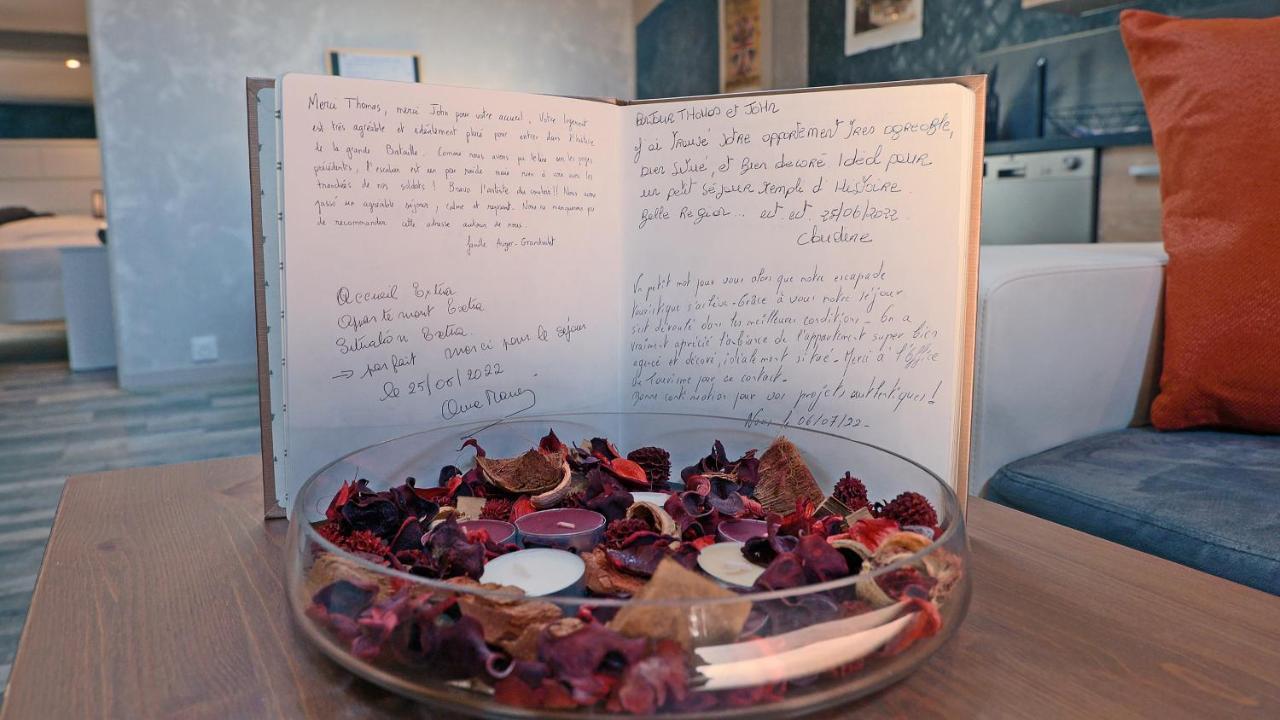 Merci Thomas, merci John pour votre accueil. Votre logement
est très agréable et idéalement placé pour entrer dans l'histoire
de la grande Bataille. Comme nous avons pu le lire sur les pages
précédentes, l'escalier est un peu raide mais rien à voir avec les
tranchées de nos soldats ! Bravo l'artiste du couloir !! Nous avons
passé un agréable séjour, calme et reposant. Nous ne manquerons pas
de recommander cette adresse autour de nous.
famille Auger-
Accueil Extra
Appartement Extra
Situation Extra
→ parfait merci pour le séjour
le 25/06/2022
BONJOUR THOMAS ET JOHN
J'ai trouvé votre appartement très agréable,
bien situé, et bien décoré. Idéal pour
un petit séjour rempli d'Histoire.
Belle Région... 25/06/2022
Claudine
Un petit mot pour vous alors que notre escapade
touristique s'achève. Grâce à vous notre séjour
s'est déroulé dans les meilleures conditions. On a
vraiment apprécié l'ambiance de l'appartement super bien
agencé et décoré, idéalement situé. Merci à l'Office
de Tourisme pour ce contact.
Bonne continuation pour vos projets authentiques !
le 06/07/22.